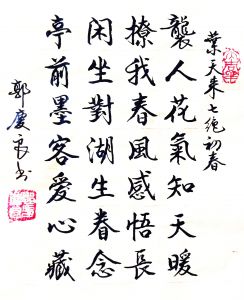 葉天来七絶初春
襲人花氣知天暖
撩我春風感悟長
闲坐對湖生眷念
亭前墨客愛心藏
郭慶良书